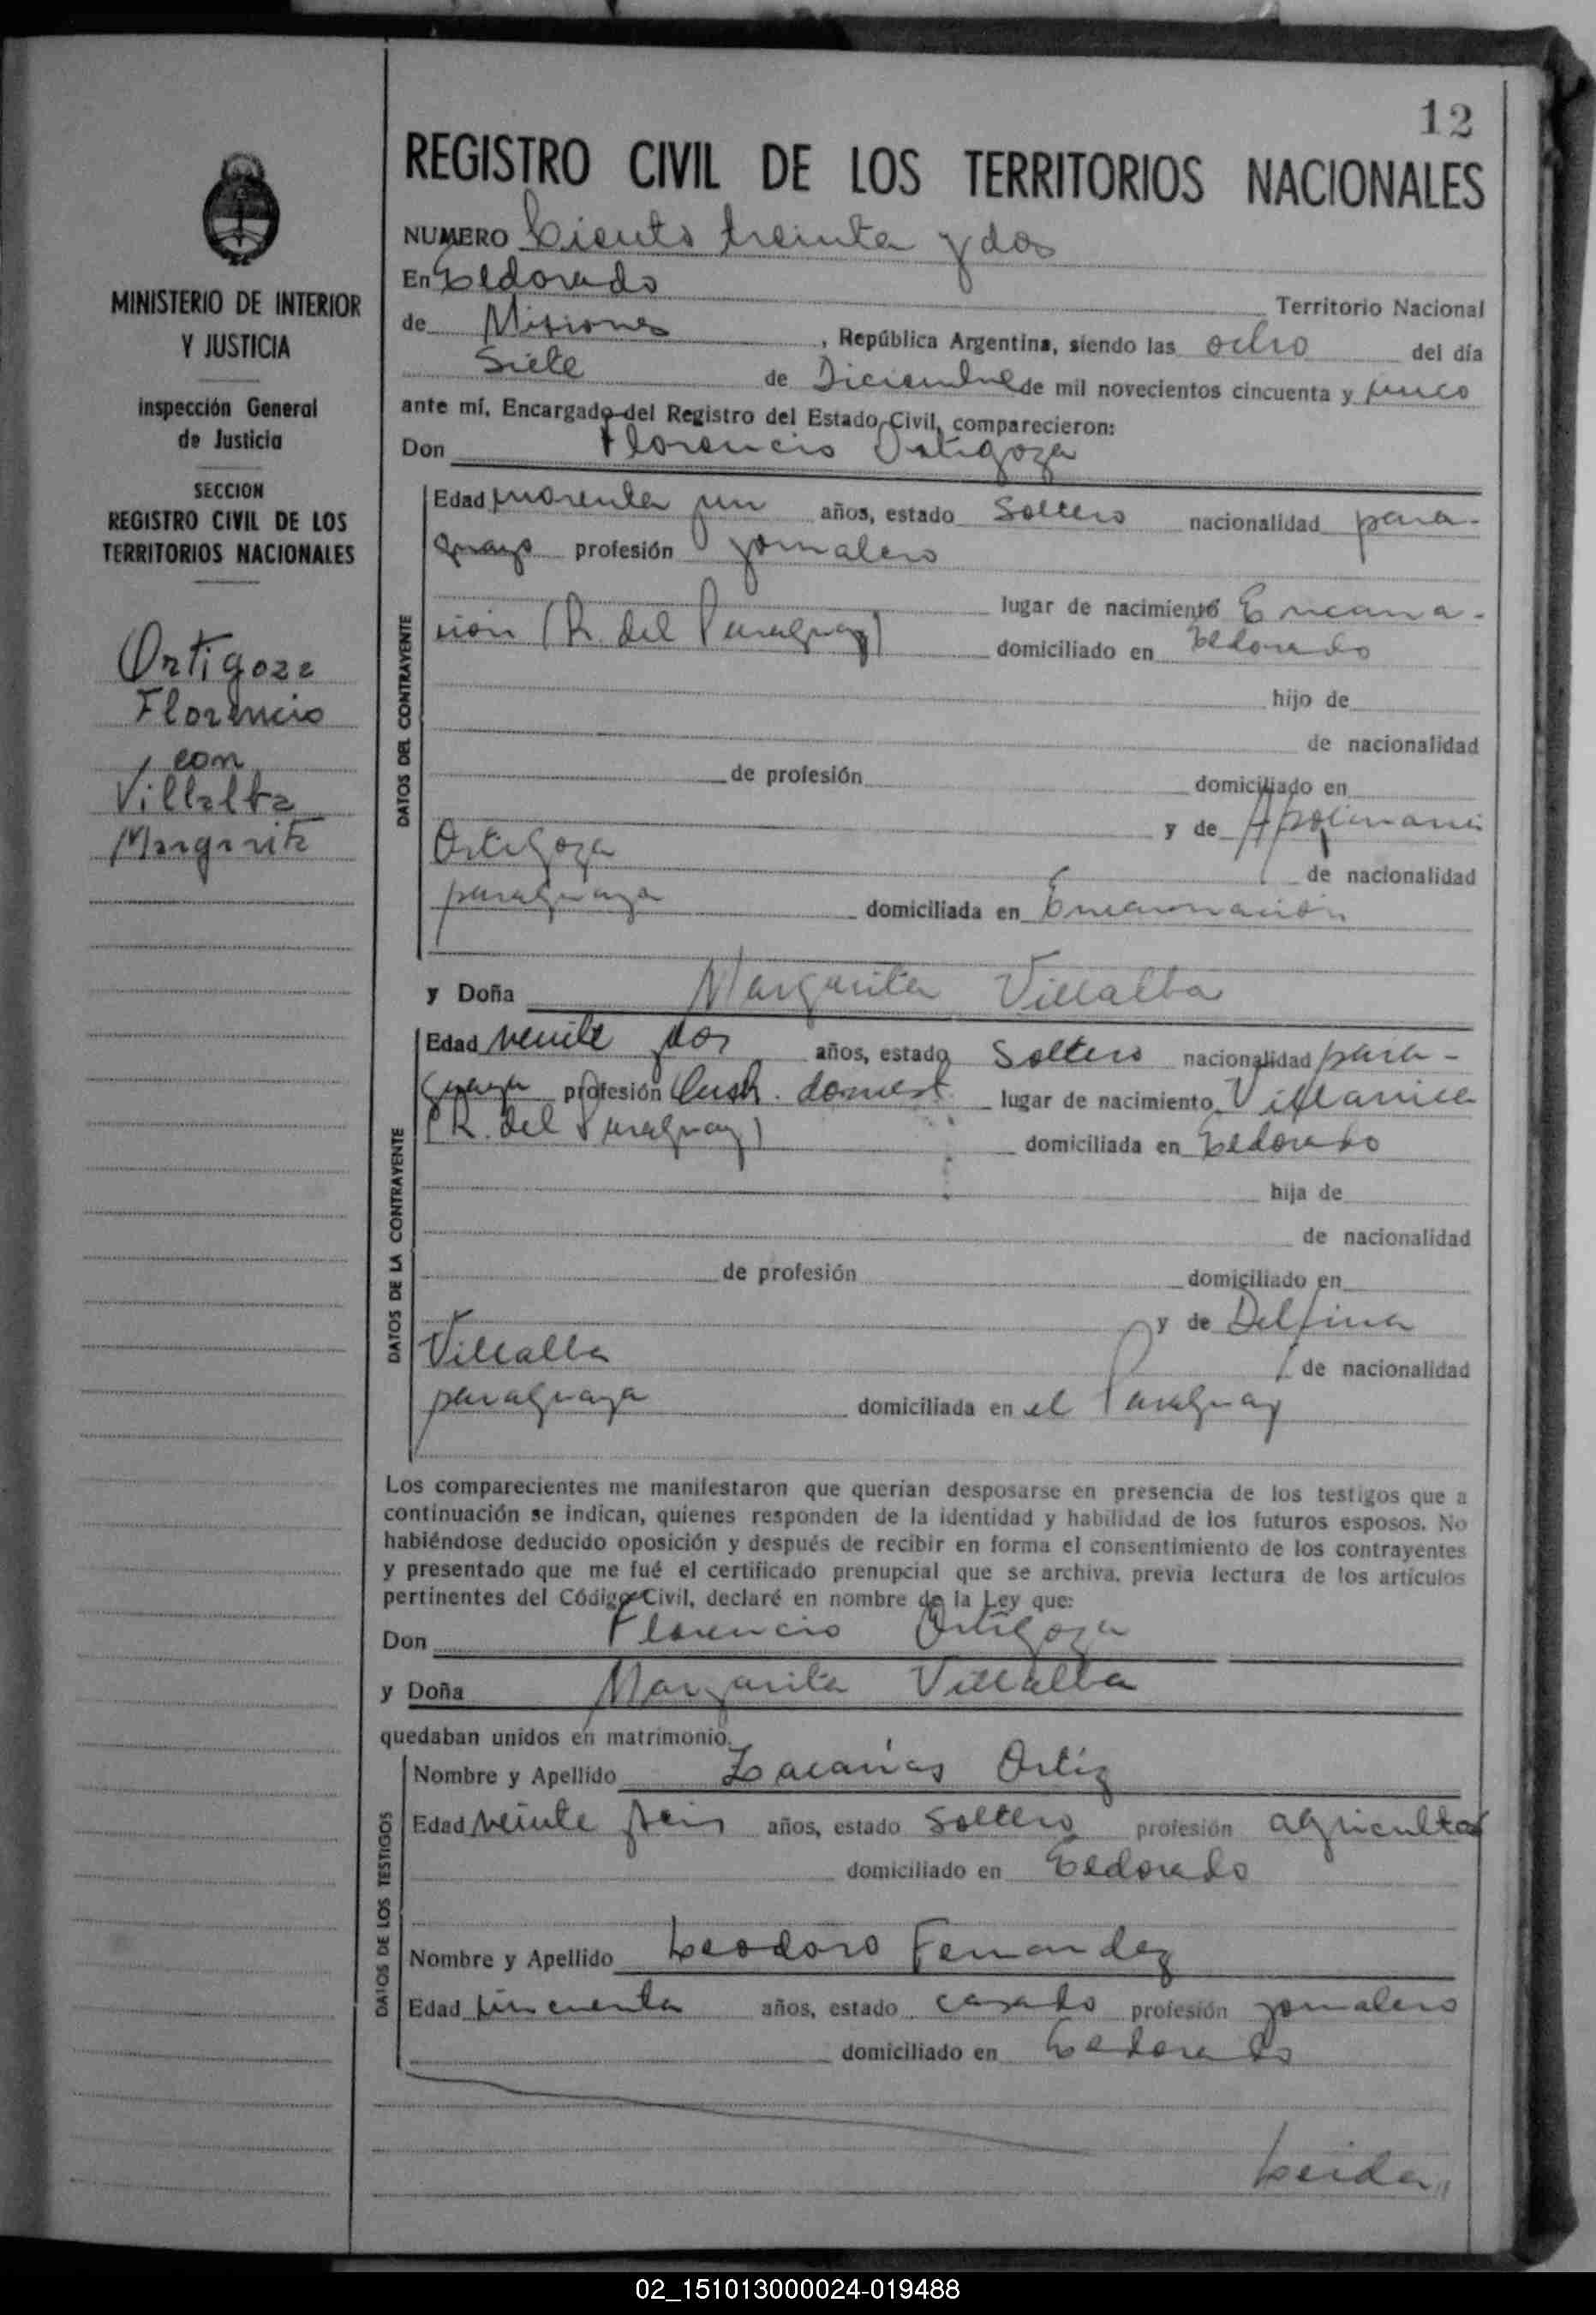 12
REGISTRO CIVIL DE LOS TERRITORIOS NACIONALES
MINISTERIO DE INTERIOR
Y JUSTICIA
Inspección General
de Justicia
SECCION
REGISTRO CIVIL DE LOS
TERRITORIOS NACIONALES
Ortigoza
Florencio
con
Villalba
Margarita
NUMERO Ciento treinta y dos
En Eldorado Territorio Nacional
de Misiones, República Argentina, siendo las ocho del día
Siete de Diciembre de mil novecientos cincuenta y cinco
ante mí, Encargado del Registro del Estado Civil, comparecieron:
Don Florencio Ortigoza
DATOS DEL CONTRAYENTE
Edad cuarenta un años, estado Soltero nacionalidad para-
guayo profesión jornalero
lugar de nacimiento Encarna-
ción (R. del Paraguay) domiciliado en Eldorado
hijo de
de nacionalidad
de profesión domiciliado en
y de Apolinaria
Ortigoza de nacionalidad
paraguaya domiciliada en Encarnación
y Doña Margarita Villalba
DATOS DE LA CONTRAYENTE
Edad veinte dos años, estado Soltero nacionalidad para-
guaya profesión domest. lugar de nacimiento Villarrica
(R. del Paraguay) domiciliada en Eldorado
hija de
de nacionalidad
de profesión domiciliado en
y de Delfina
Villalba de nacionalidad
paraguaya domiciliada en el Paraguay
Los comparecientes me manifestaron que querían desposarse en presencia de los testigos que a
continuación se indican, quienes responden de la identidad y habilidad de los futuros esposos. No
habiéndose deducido oposición y después de recibir en forma el consentimiento de los contrayentes
y presentado que me fué el certificado prenupcial que se archiva, previa lectura de los artículos
pertinentes del Código Civil, declaré en nombre de la Ley que:
Don Florencio Ortigoza
y Doña Margarita Villalba
quedaban unidos en matrimonio.
DATOS DE LOS TESTIGOS
Nombre y Apellido Zacarías Ortiz
Edad veinte seis años, estado Soltero profesión agricultor
domiciliado en Eldorado
Nombre y Apellido Leodoro Fernandez
Edad cincuenta años, estado casado profesión jornalero
domiciliado en Eldorado
Leida,,
02_151013000024-019488